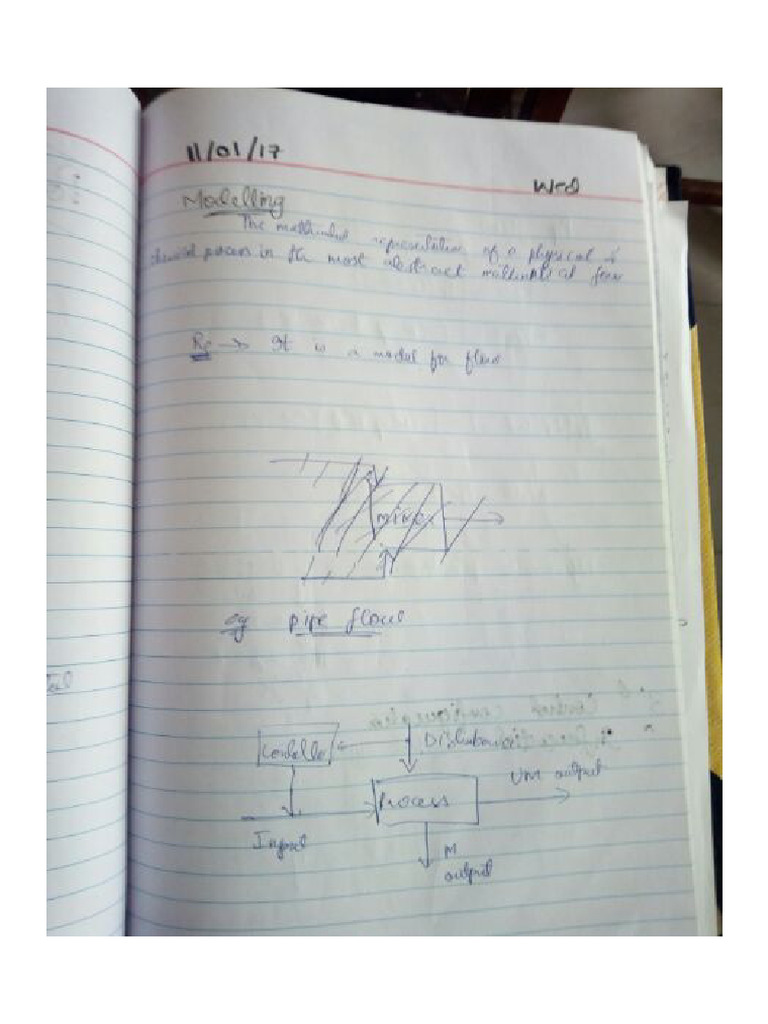 11/01/17
Wed
Modelling
The representation of a physical &
chemical process in the most abstract form
Re → It is a model for flow
mixe
eg pipe flow
Disturbance
UM output
Process
Input
M
output